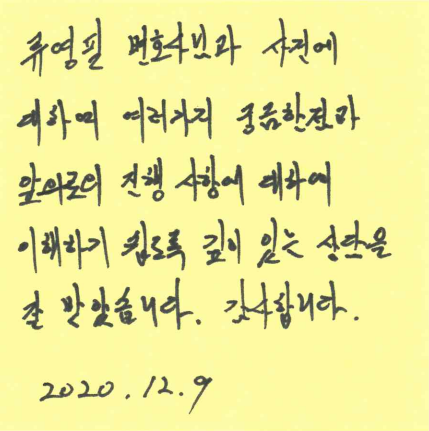 류영필 변호사님과 사건에
대하여 여러가지 궁금한점과
앞의로의 진행 사항에 대하여
이해하기 쉽도록 깊이 있는 상담을
잘 받았습니다. 감사합니다.
2020.12.9